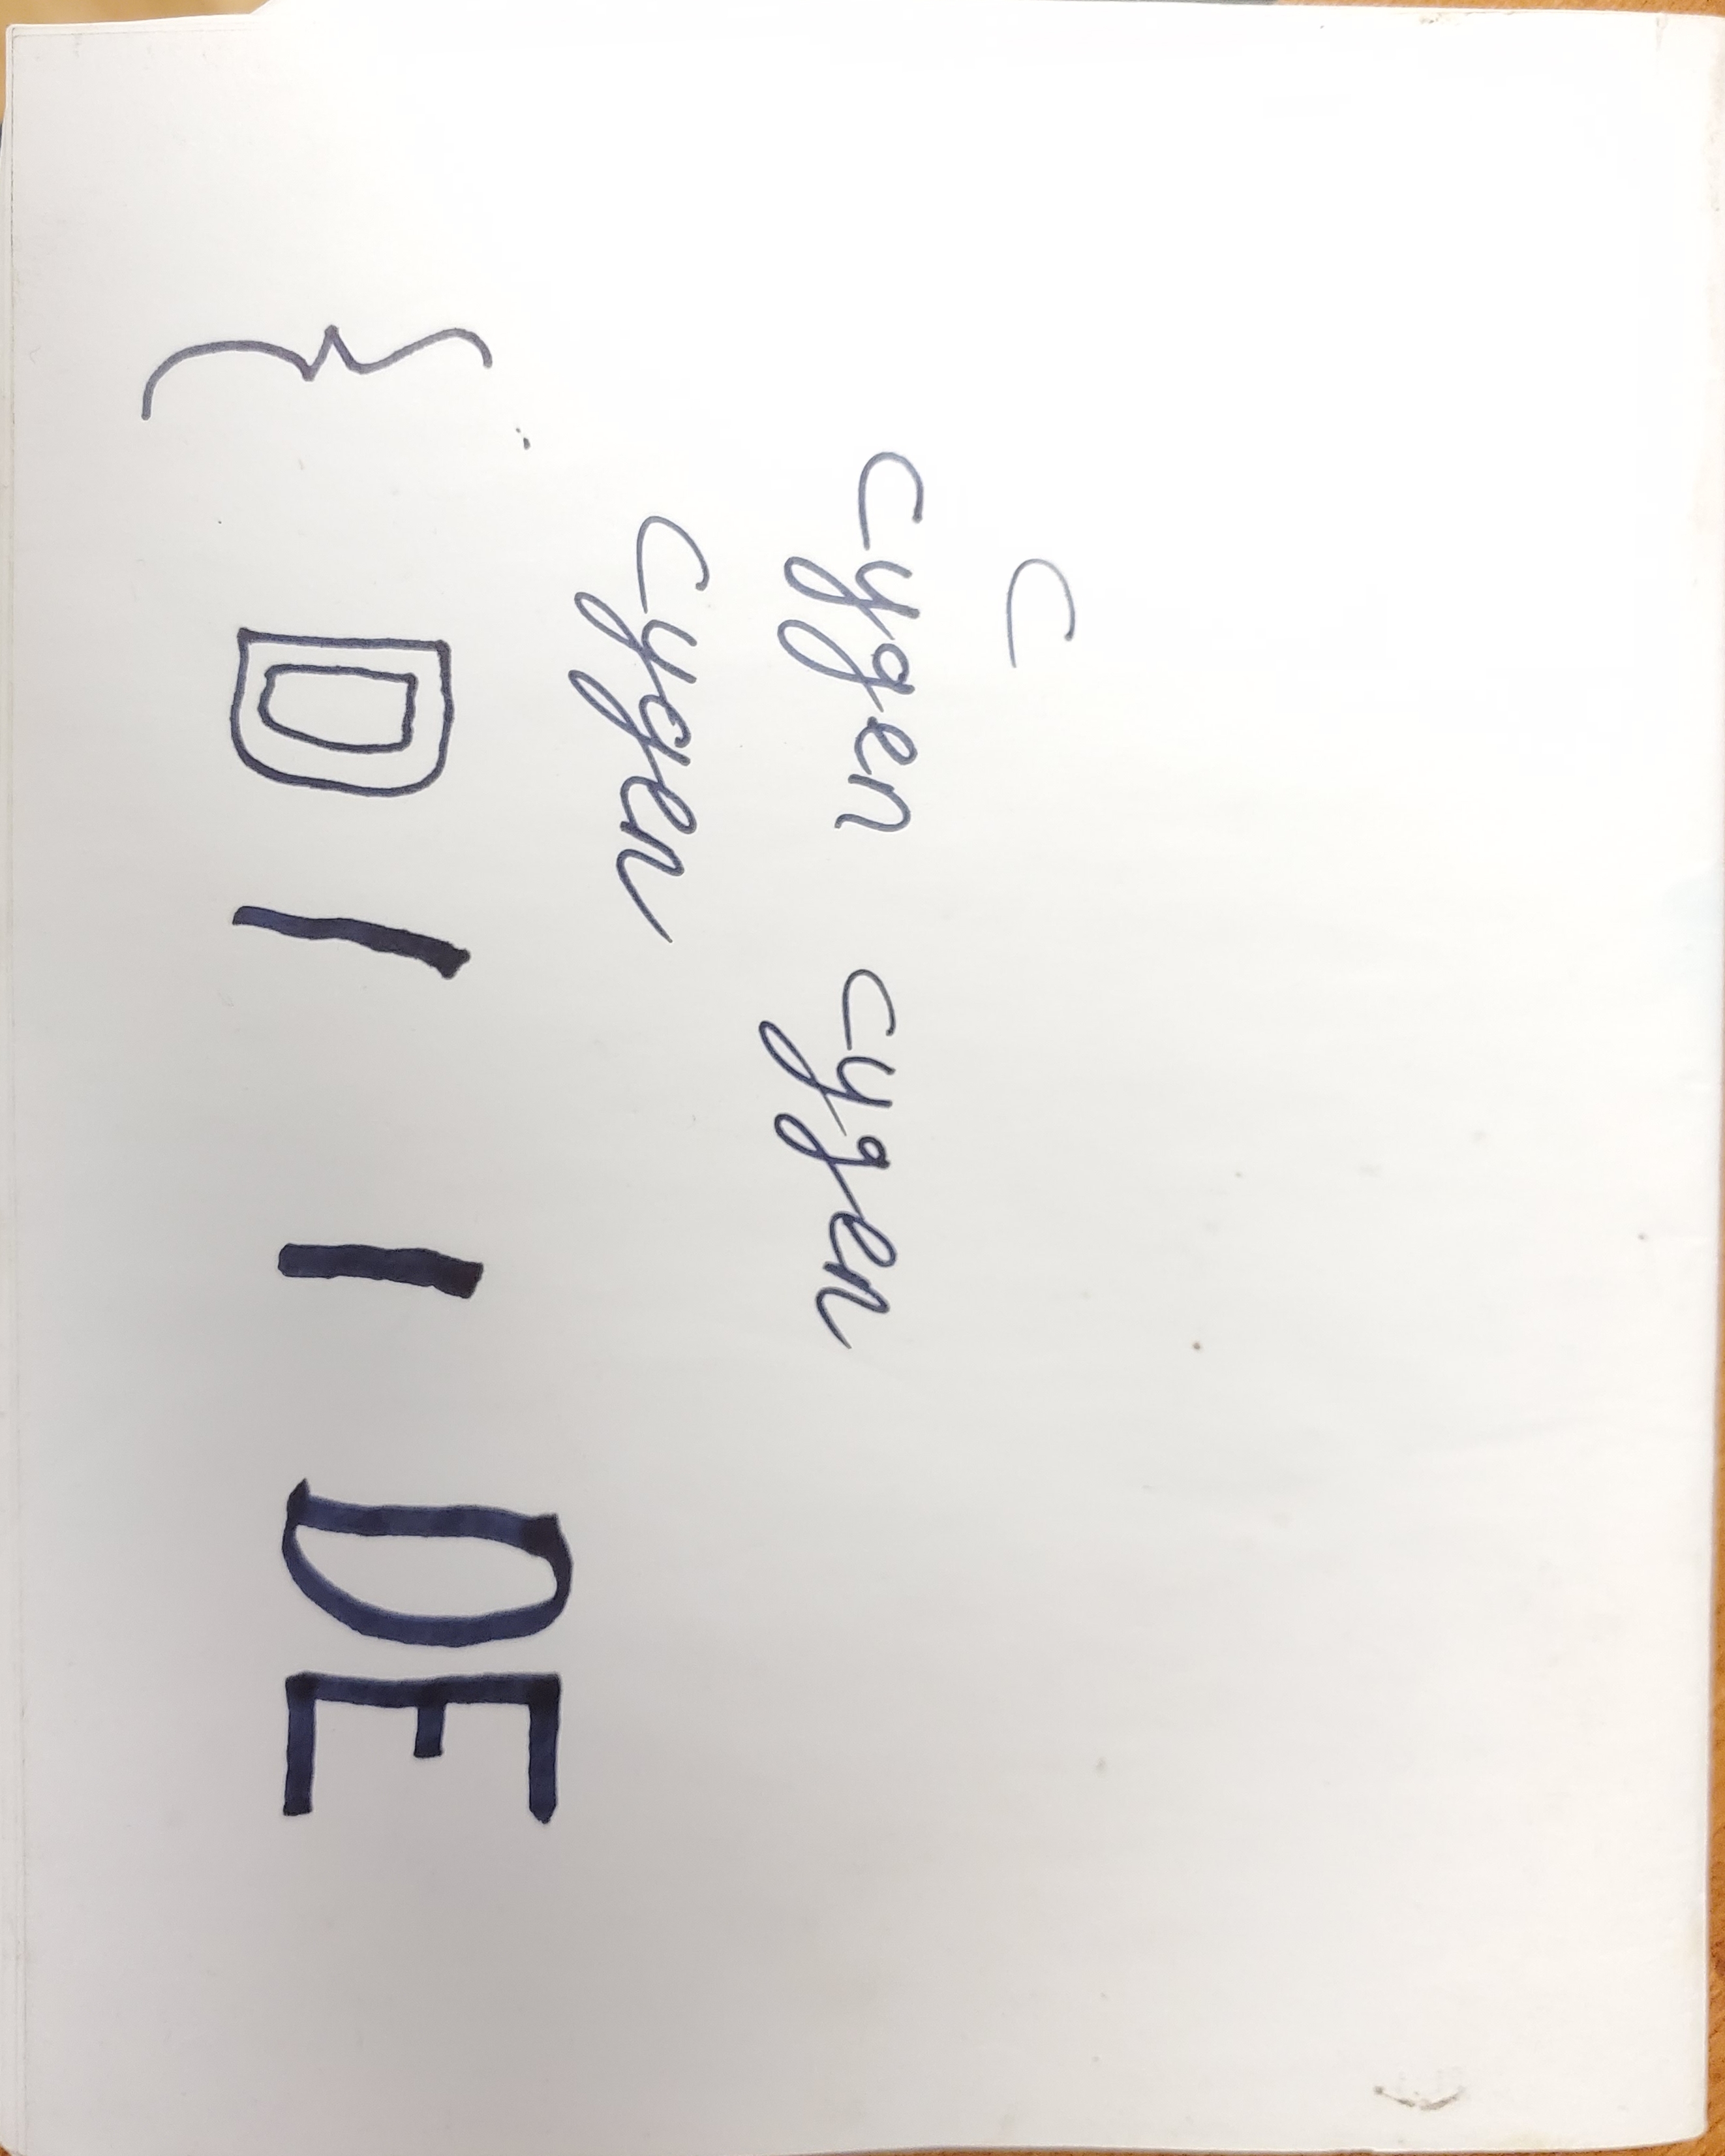 C
cygen cygen
cygen
{ D I I DE